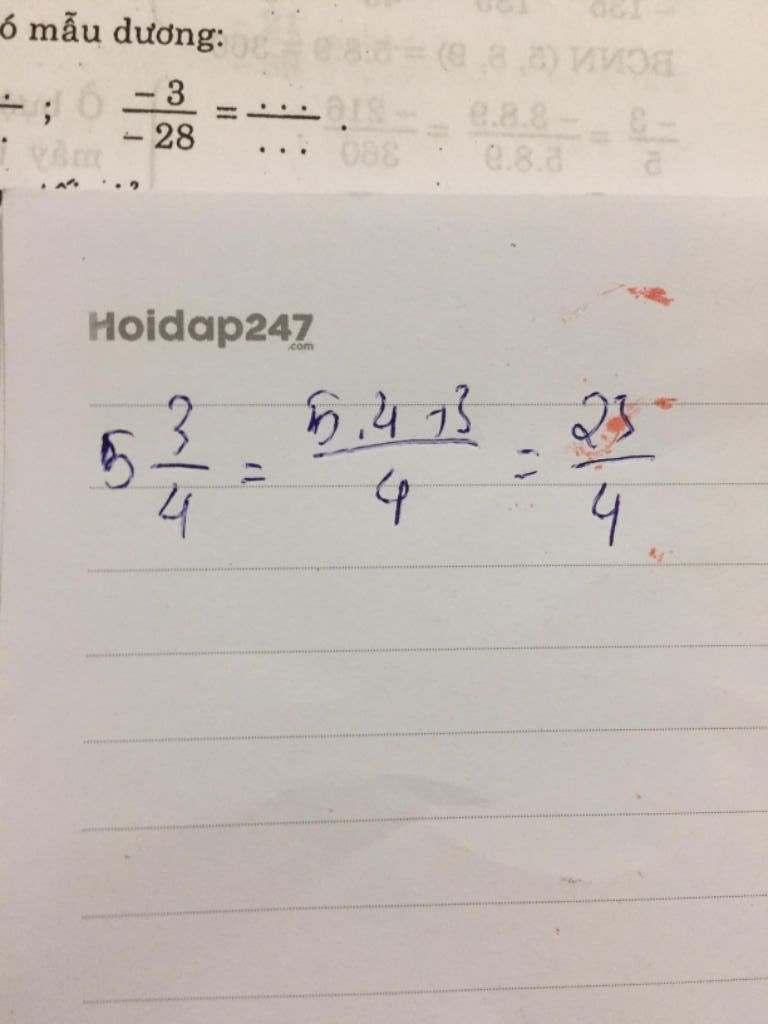 ó mẫu dương:
; -3/-28 = .../... .
Hoidap247
.com
5 3/4 = 5.4+3/4 = 23/4